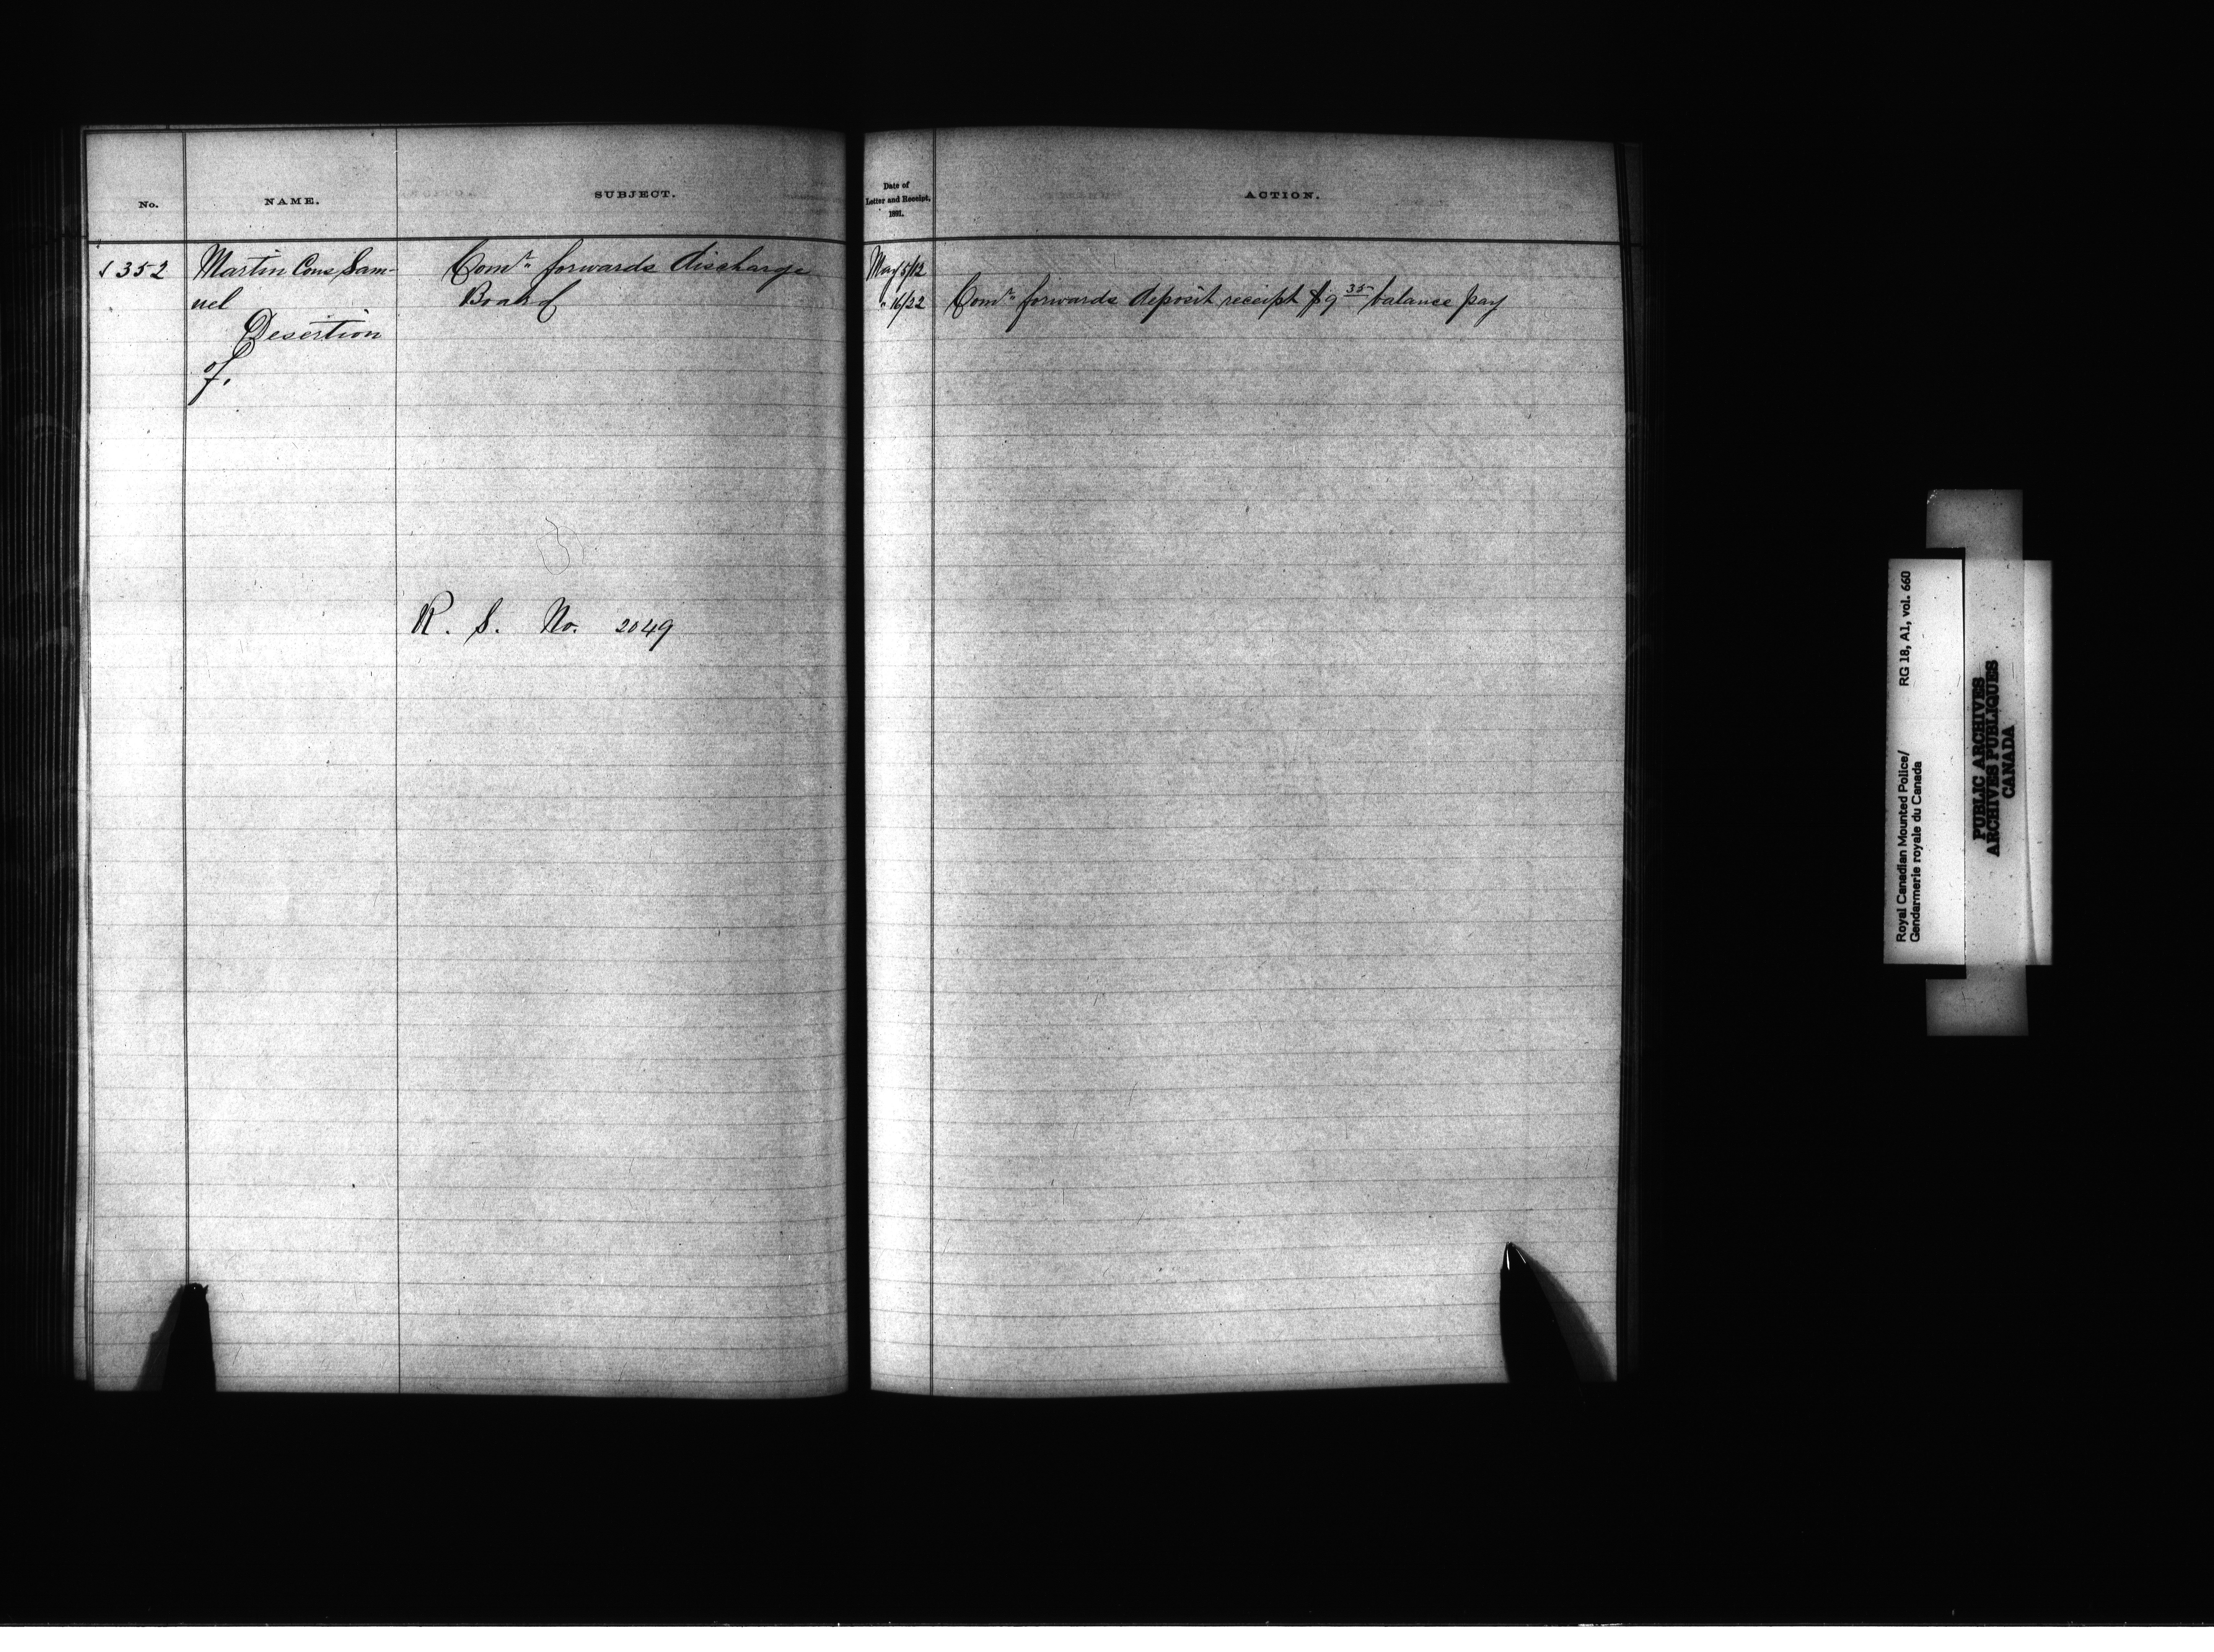 No.
NAME.
SUBJECT.
352
Martin Cons Sam-
uel
Desertion
of.
Comr. forwards discharge
Board
R. S. No. 2049
Date of
Letter and Receipt,
1891.
ACTION.
May 5/12
" 16/22
Comr. forwards deposit receipt $9 35 balance pay
Royal Canadian Mounted Police/
Gendarmerie royale du Canada
RG 18, A1, vol. 660
PUBLIC ARCHIVES
ARCHIVES PUBLIQUES
CANADA